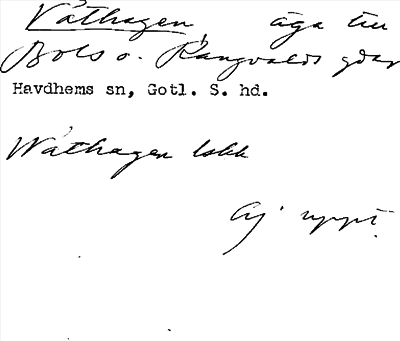 Våthagen, äga till
Bols o. Rangvalds gdar
Havdhems sn, Gotl. S. hd.
Wåthagen lskk
Ej uppt.